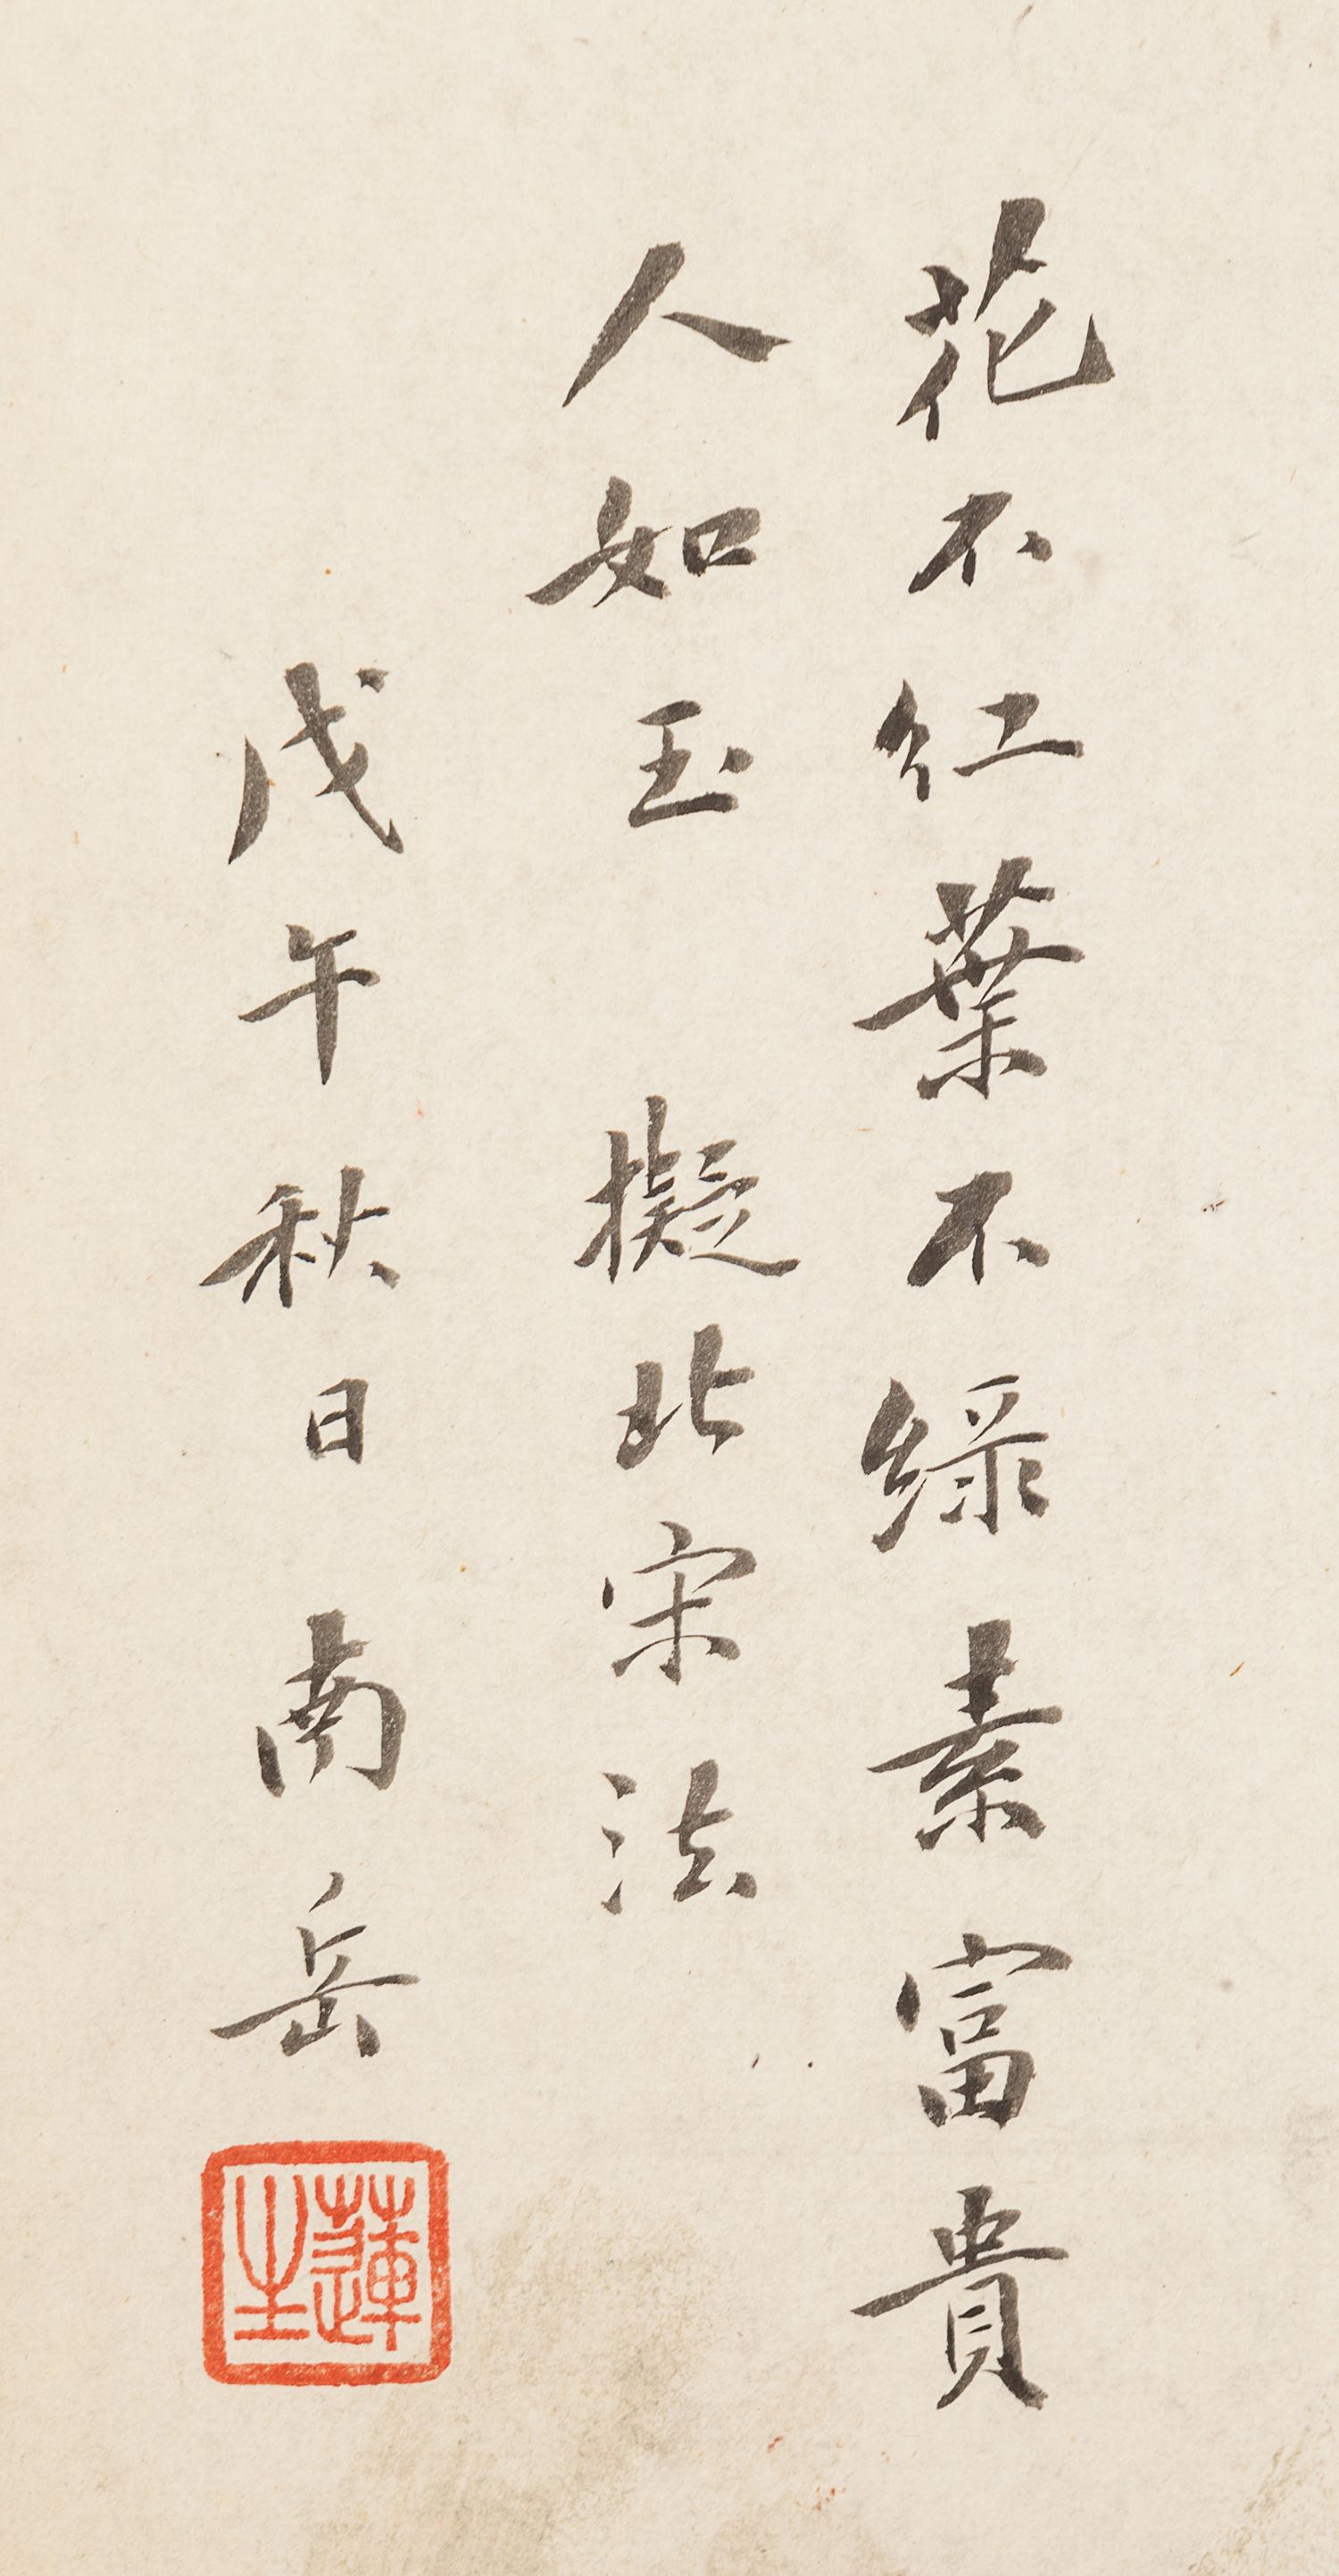 花不紅葉不綠素富貴
人如玉 擬北宋法
戊午秋日 南岳
蓮生